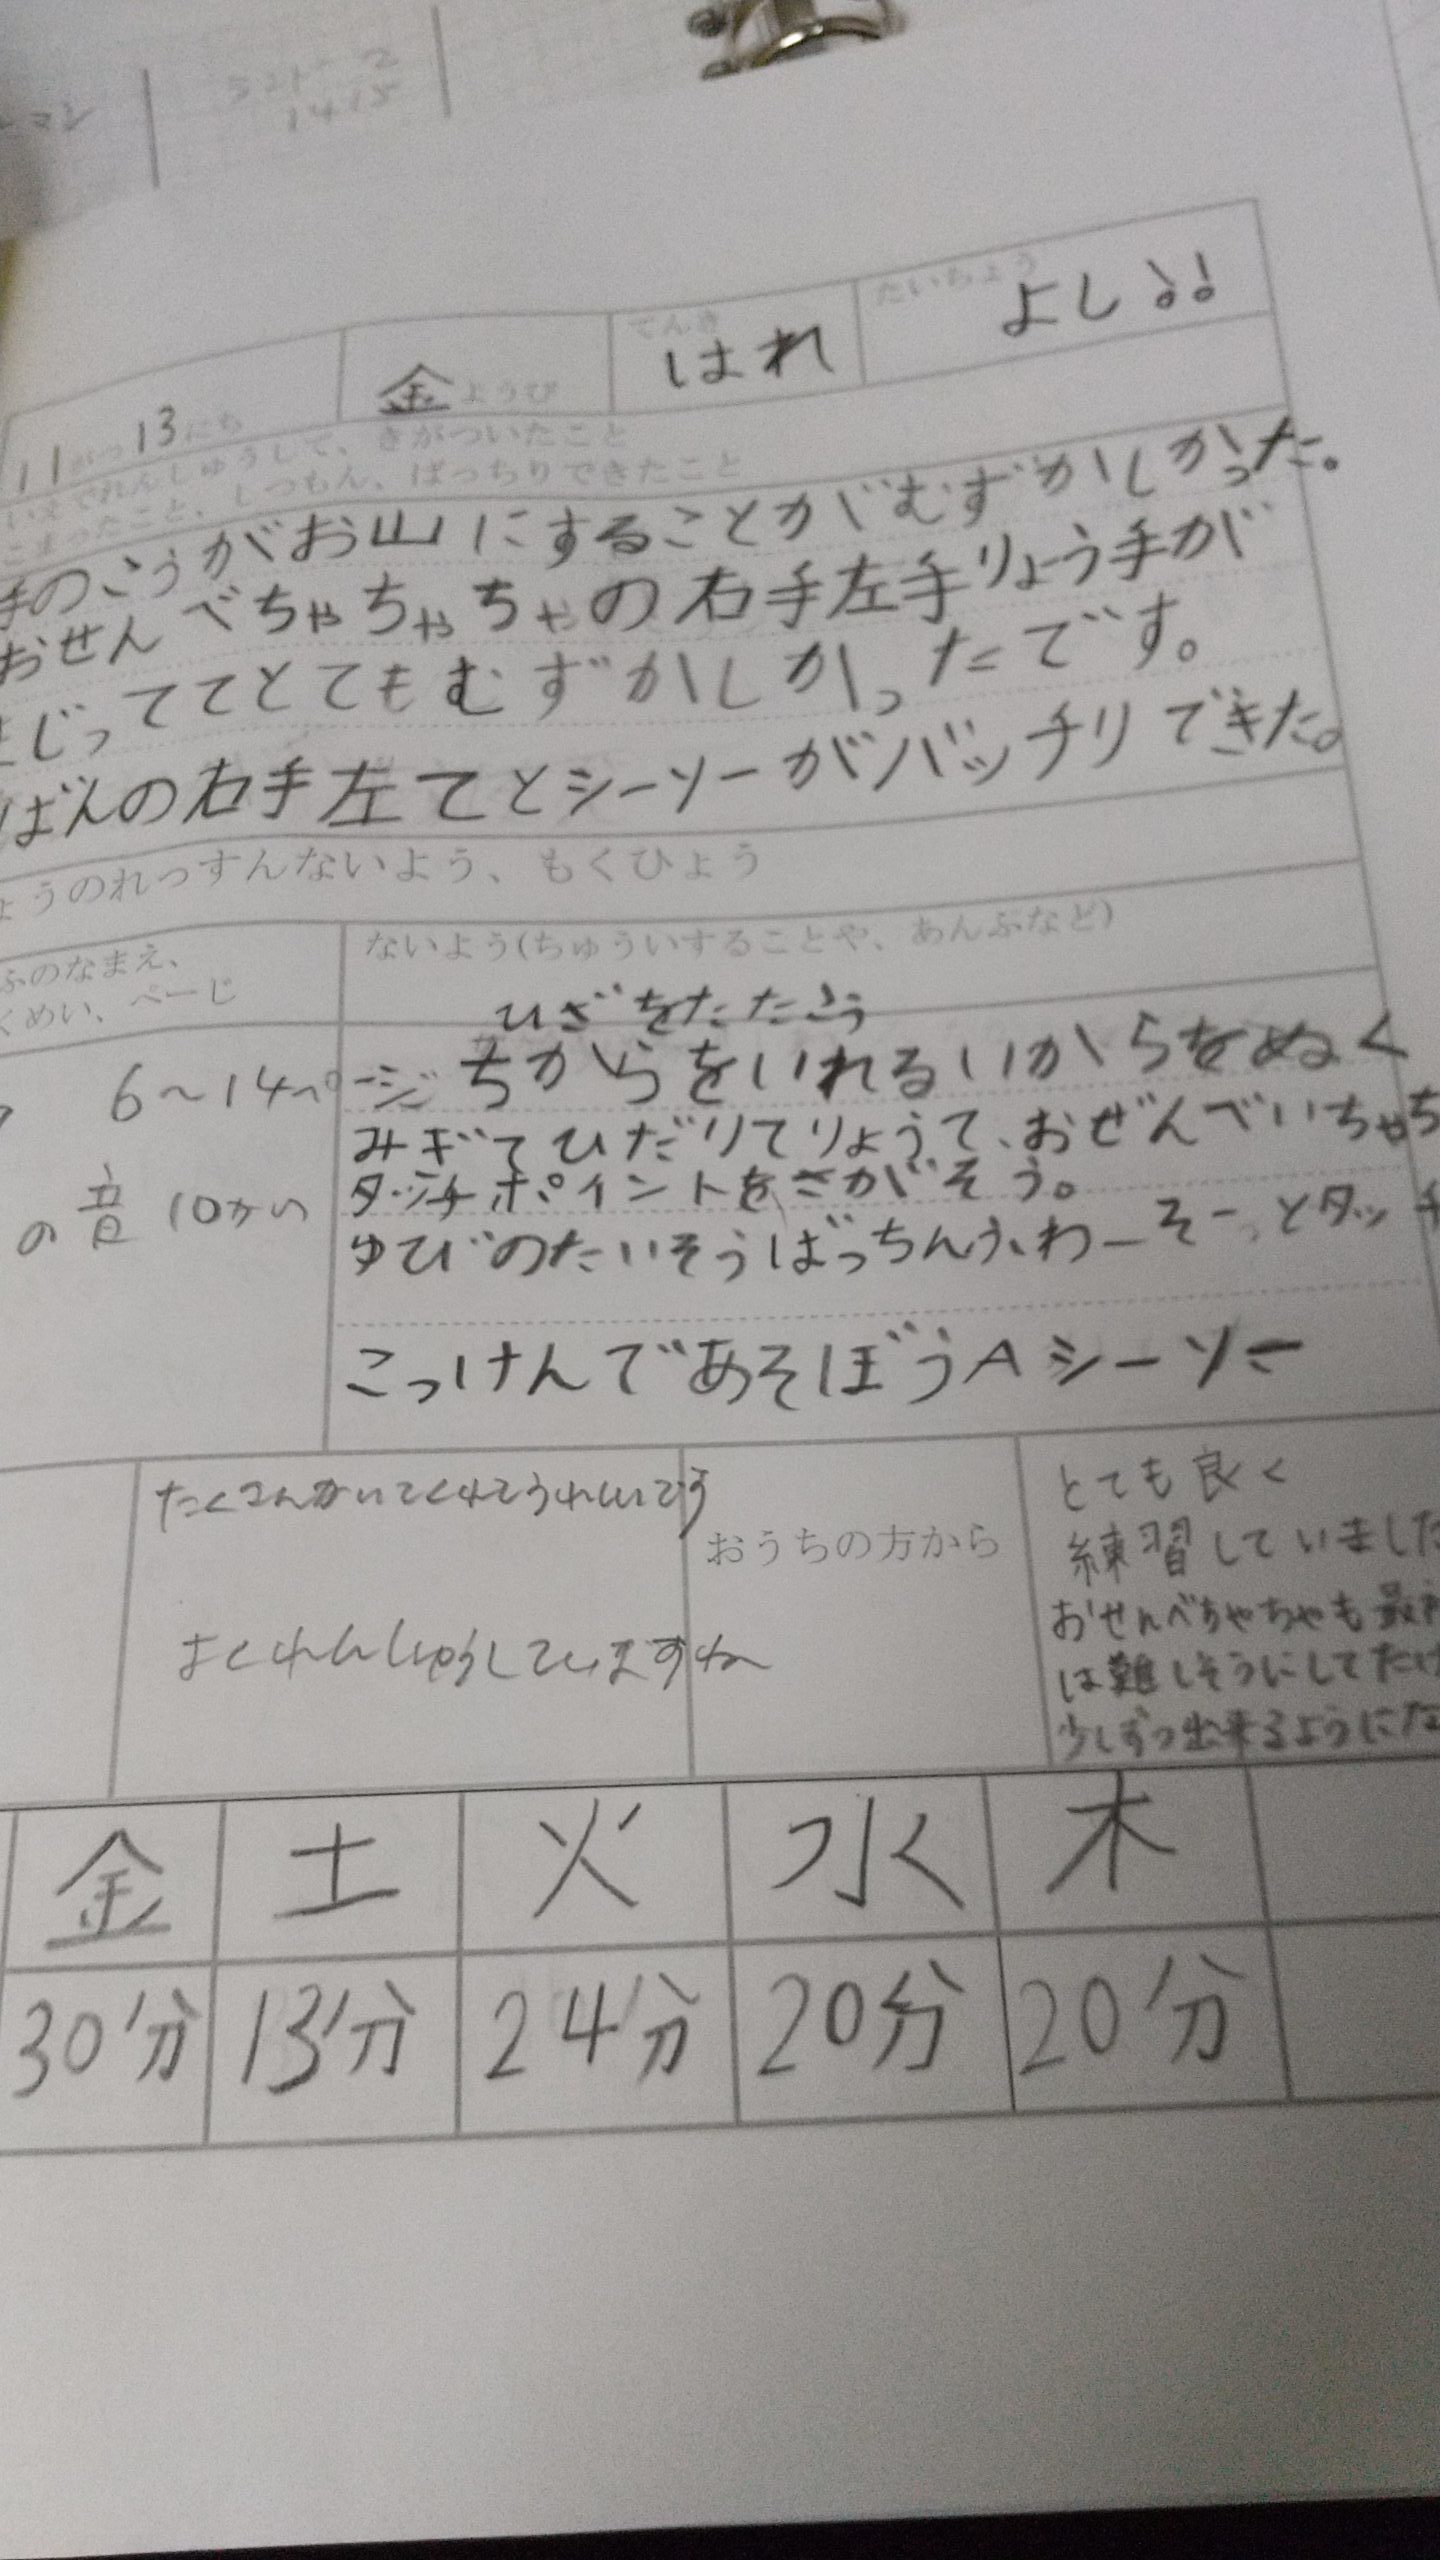 11がつ13にち 金ようび てんき はれ たいちょう よし!!
いえでれんしゅうして、きがついたこと
こまったこと、しつもん、ばっちりできたこと
手のこうがお山にすることがむずかしかった。
おせんべちゃちゃちゃの右手左手りょう手が
まじっててとてもむずかしかったです。
ばんの右手左てとシーソーがバッチリできた。
ょうのれっすんないよう、もくひょう
ふのなまえ、
くめい、ページ
ないよう(ちゅういすることや、あんぷなど)
ひざをたたこう
6〜14ページ ちからをいれるいからをぬく
みぎてひだりてりょうて、おぜんべいちゃち
タッチポイントをさがそう。
の音 10かい
ゆびのたいそうばっちんふわーそーっとタッチ
こっけんであそぼうAシーソー
たくさんかいてくれてうれしいです
よくれんしゅうしていますね
おうちの方から
とても良く
練習していました
おせんべちゃちゃも最
は難しそうにしてたけ
少しずつ出来るようにな
金 土 火 水 木
30分 13分 24分 20分 20分